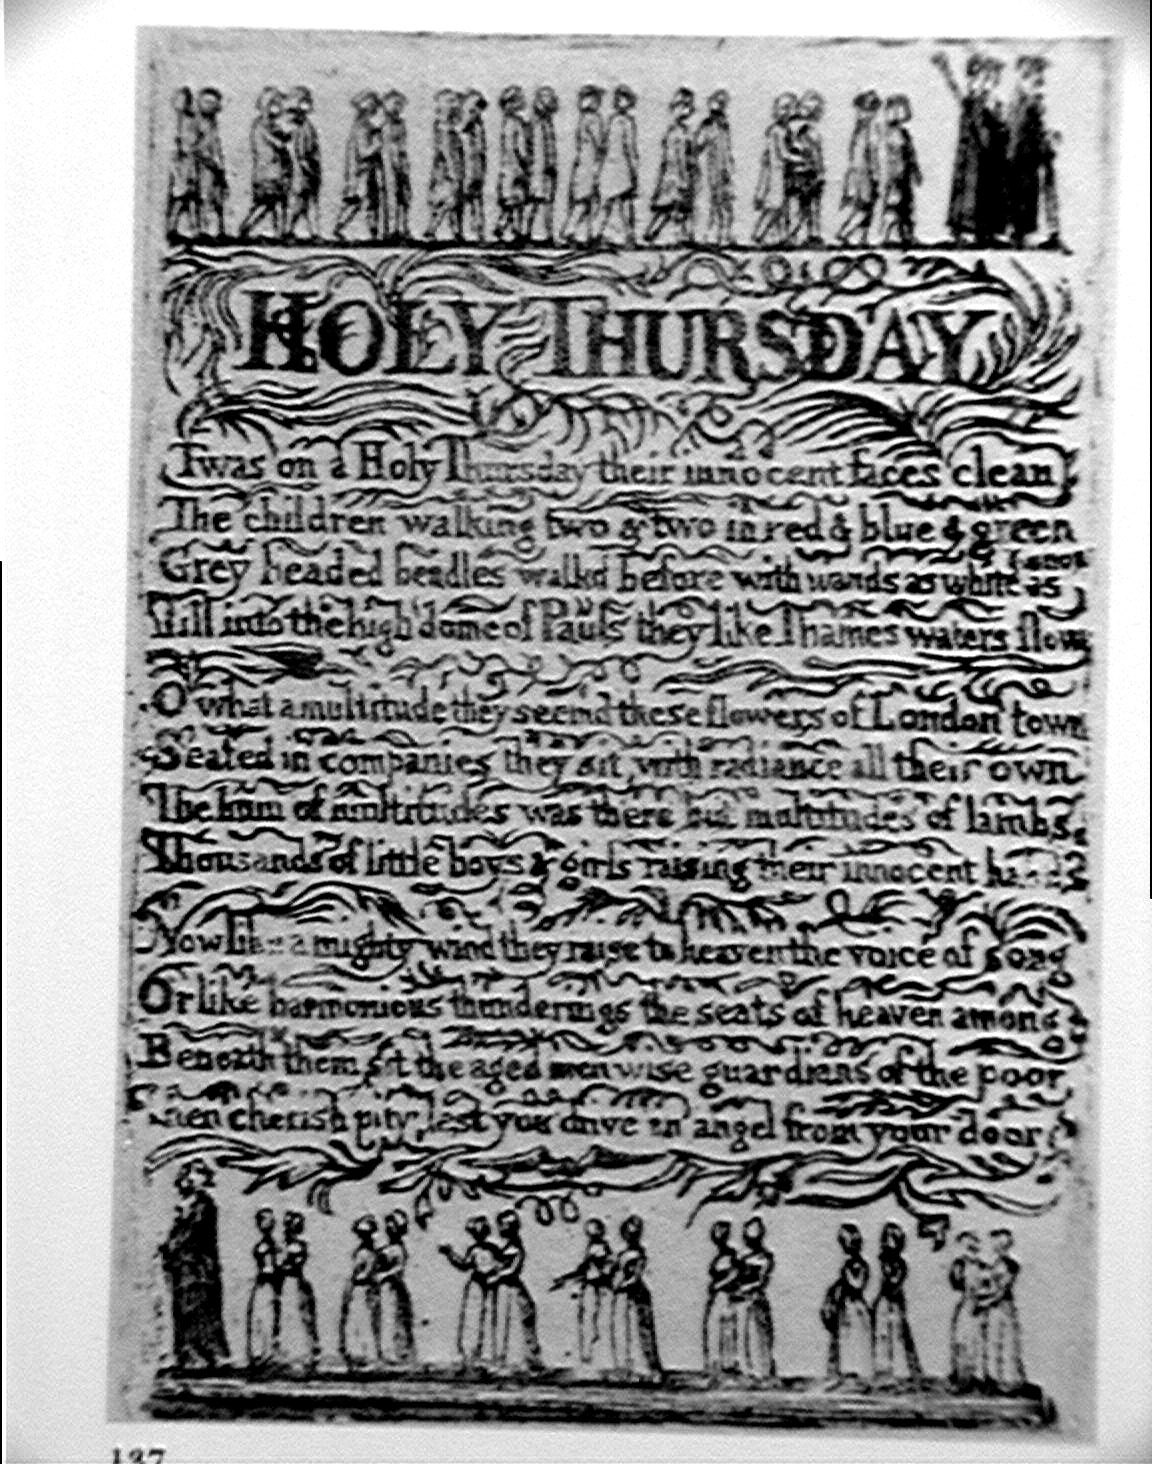 HOLY THURSDAY
Twas on a Holy Thursday their innocent faces clean
The children walking two & two in red & blue & green
Grey headed beadles walkd before with wands as white as snow
Till into the high dome of Pauls they like Thames waters flow
O what a multitude they seemd these flowers of London town
Seated in companies they sit with radiance all their own
The hum of multitudes was there but multitudes of lambs
Thousands of little boys & girls raising their innocent hands
Now like a mighty wind they raise to heaven the voice of song
Or like harmonious thunderings the seats of heaven among
Beneath them sit the aged men wise guardians of the poor
Then cherish pity, lest you drive an angel from your door
137